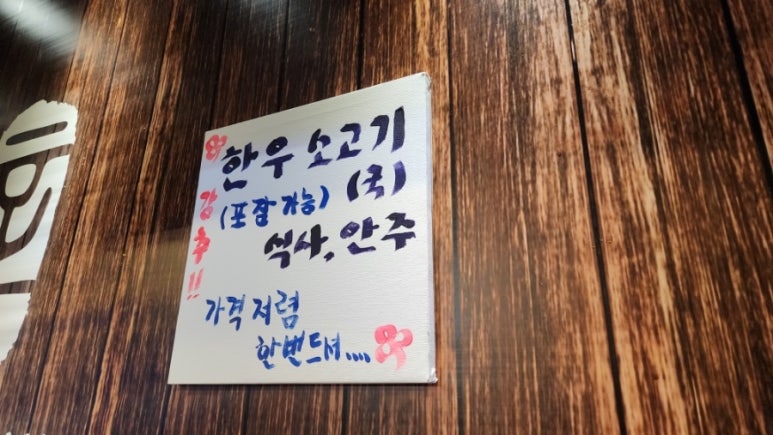 한우 소고기
(국)
(포장 가능)
식사, 안주
강추!!
가격 저렴
한번드셔....